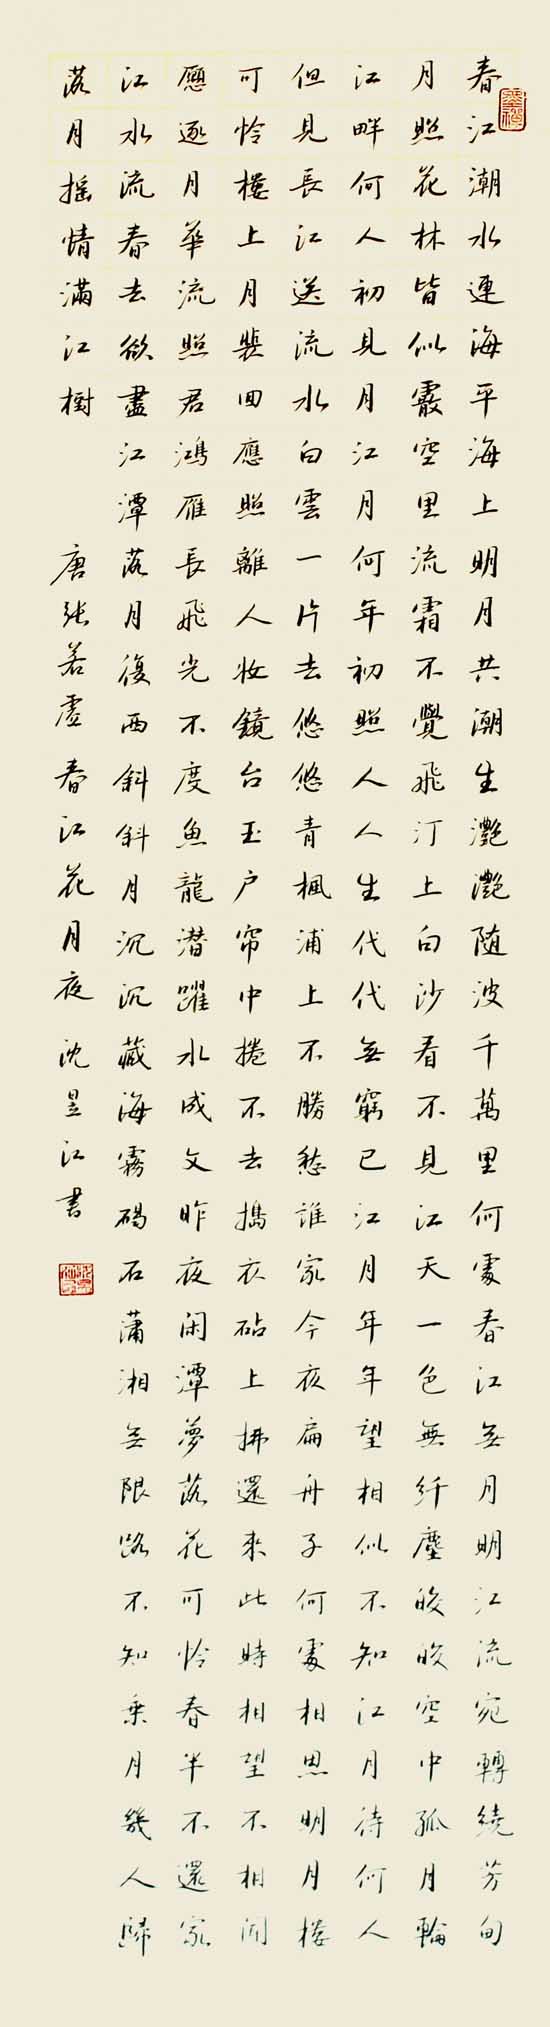 春江潮水連海平海上明月共潮生灧灧随波千萬里何處春江無月明江流宛轉繞芳甸
月照花林皆似霰空里流霜不覺飛汀上白沙看不見江天一色無纤塵皎皎空中孤月輪
江畔何人初見月江月何年初照人人生代代無窮已江月年年望相似不知江月待何人
但見長江送流水白雲一片去悠悠青楓浦上不勝愁誰家今夜扁舟子何處相思明月樓
可怜樓上月裴回應照離人妝鏡台玉户帘中捲不去搗衣砧上拂還來此時相望不相聞
願逐月華流照君鴻雁長飛光不度魚龍潜躍水成文昨夜闲潭夢落花可怜春半不還家
江水流春去欲盡江潭落月復西斜斜月沉沉藏海霧碣石瀟湘無限路不知乘月幾人歸
落月摇情滿江樹 唐張若虚 春江花月夜 沈昱江書